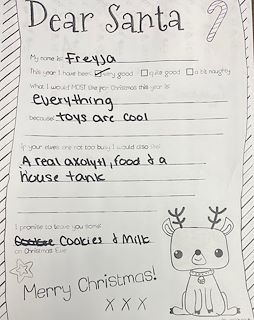 Dear Santa
My name is: Freyja
This year I have been: very good quite good a bit naughty
What I would MOST like for Christmas this year is:
everything
because toys are cool
If your elves are not too busy I would also like:
A real axolytl, food & a
house tank
I promise to leave you some:
Cookies & Milk
on Christmas Eve
Merry Christmas!
X X X